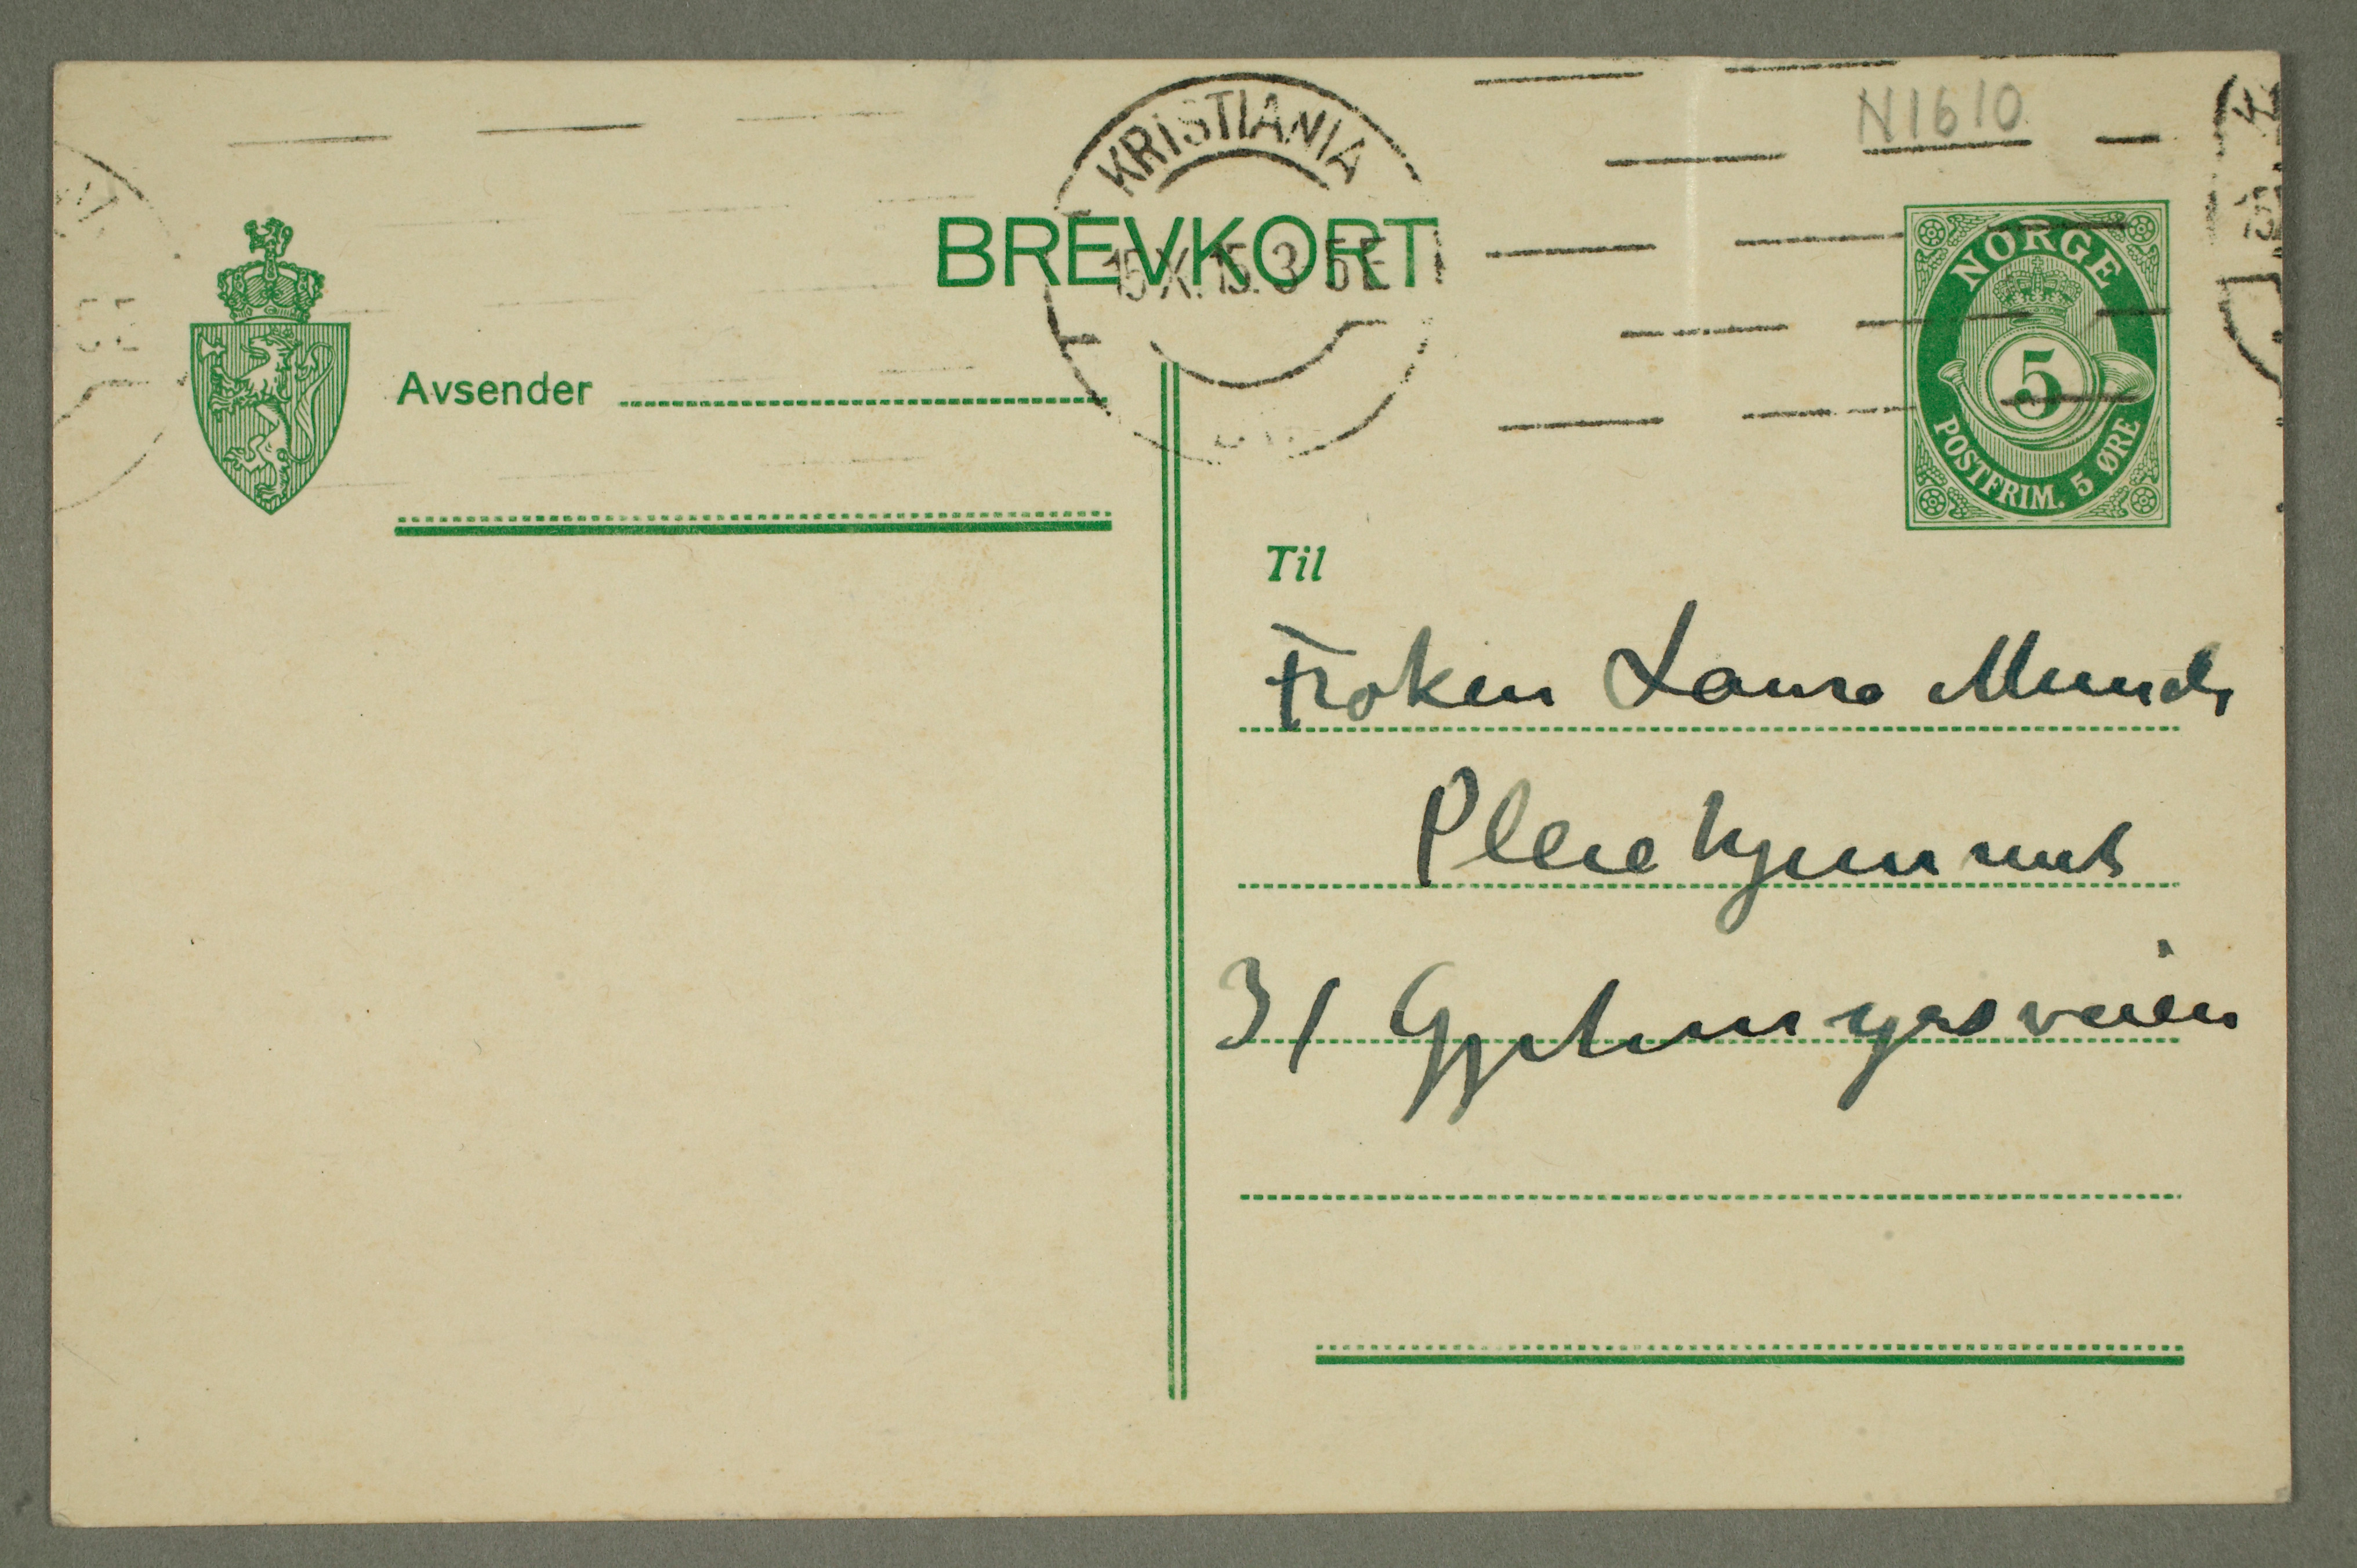 N1610
KRISTIANIA
15 X. 15. 3-5 E
BREVKORT
NORGE
5
POSTFRIM. 5 ØRE
Avsender
Til
Frøken Laura Munch
Pleiehjemmet
31 Gjetemyrsveien